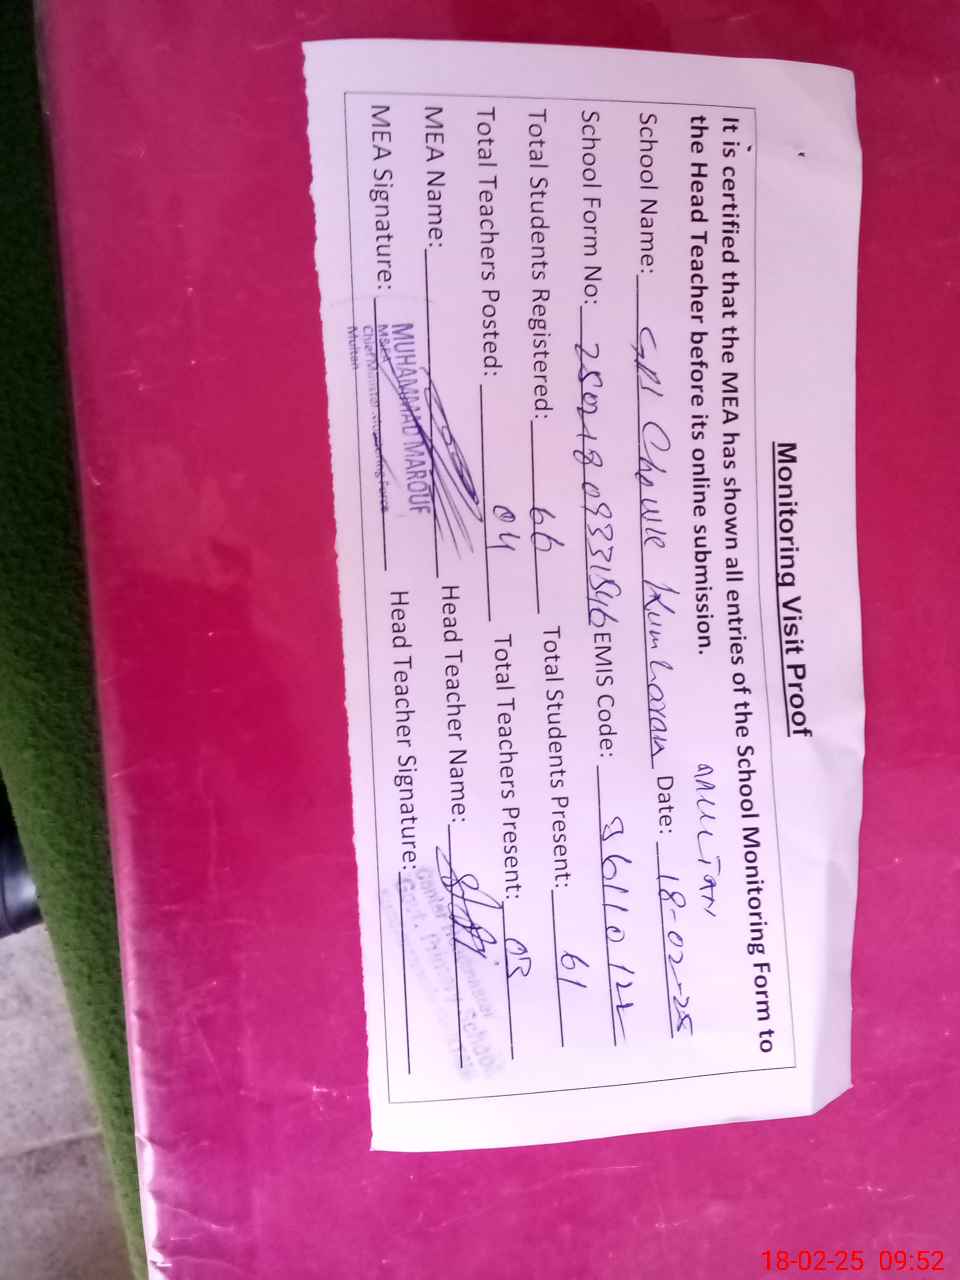 Monitoring Visit Proof
It is certified that the MEA has shown all entries of the School Monitoring Form to
the Head Teacher before its online submission.
MULTAN
School Name: Chowk Kumharan Date: 18-02-25
School Form No: EMIS Code: 36110122
Total Students Registered: 66 Total Students Present: 61
Total Teachers Posted: 04 Total Teachers Present: 03
MEA Name: Head Teacher Name:
MEA Signature: Head Teacher Signature:
MUHAMMAD MAROUF
MEA
Chief Minister Monitoring Force
Multan
Govt. Primary School
18-02-25 09:52